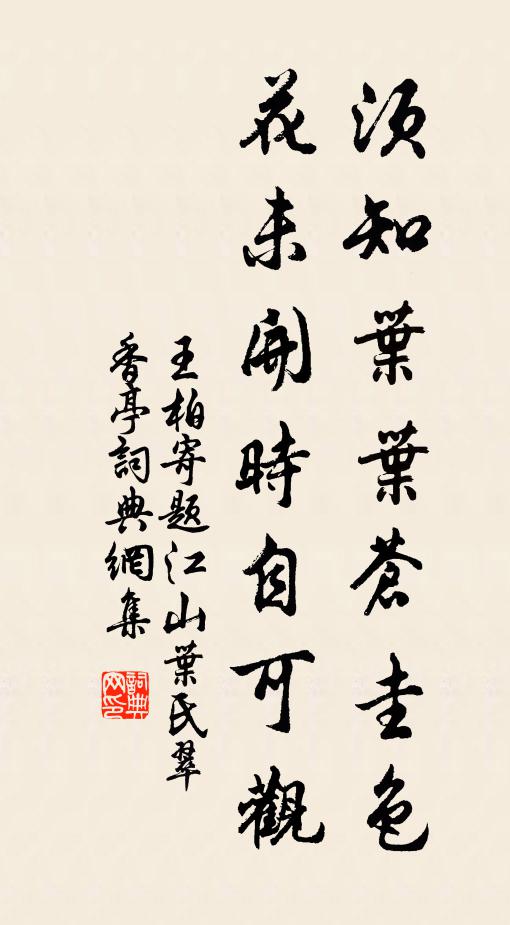 須知葉葉蒼圭色
花未開時自可觀
王柏寄題江山葉氏翠
香亭詞典網集
詞典網印